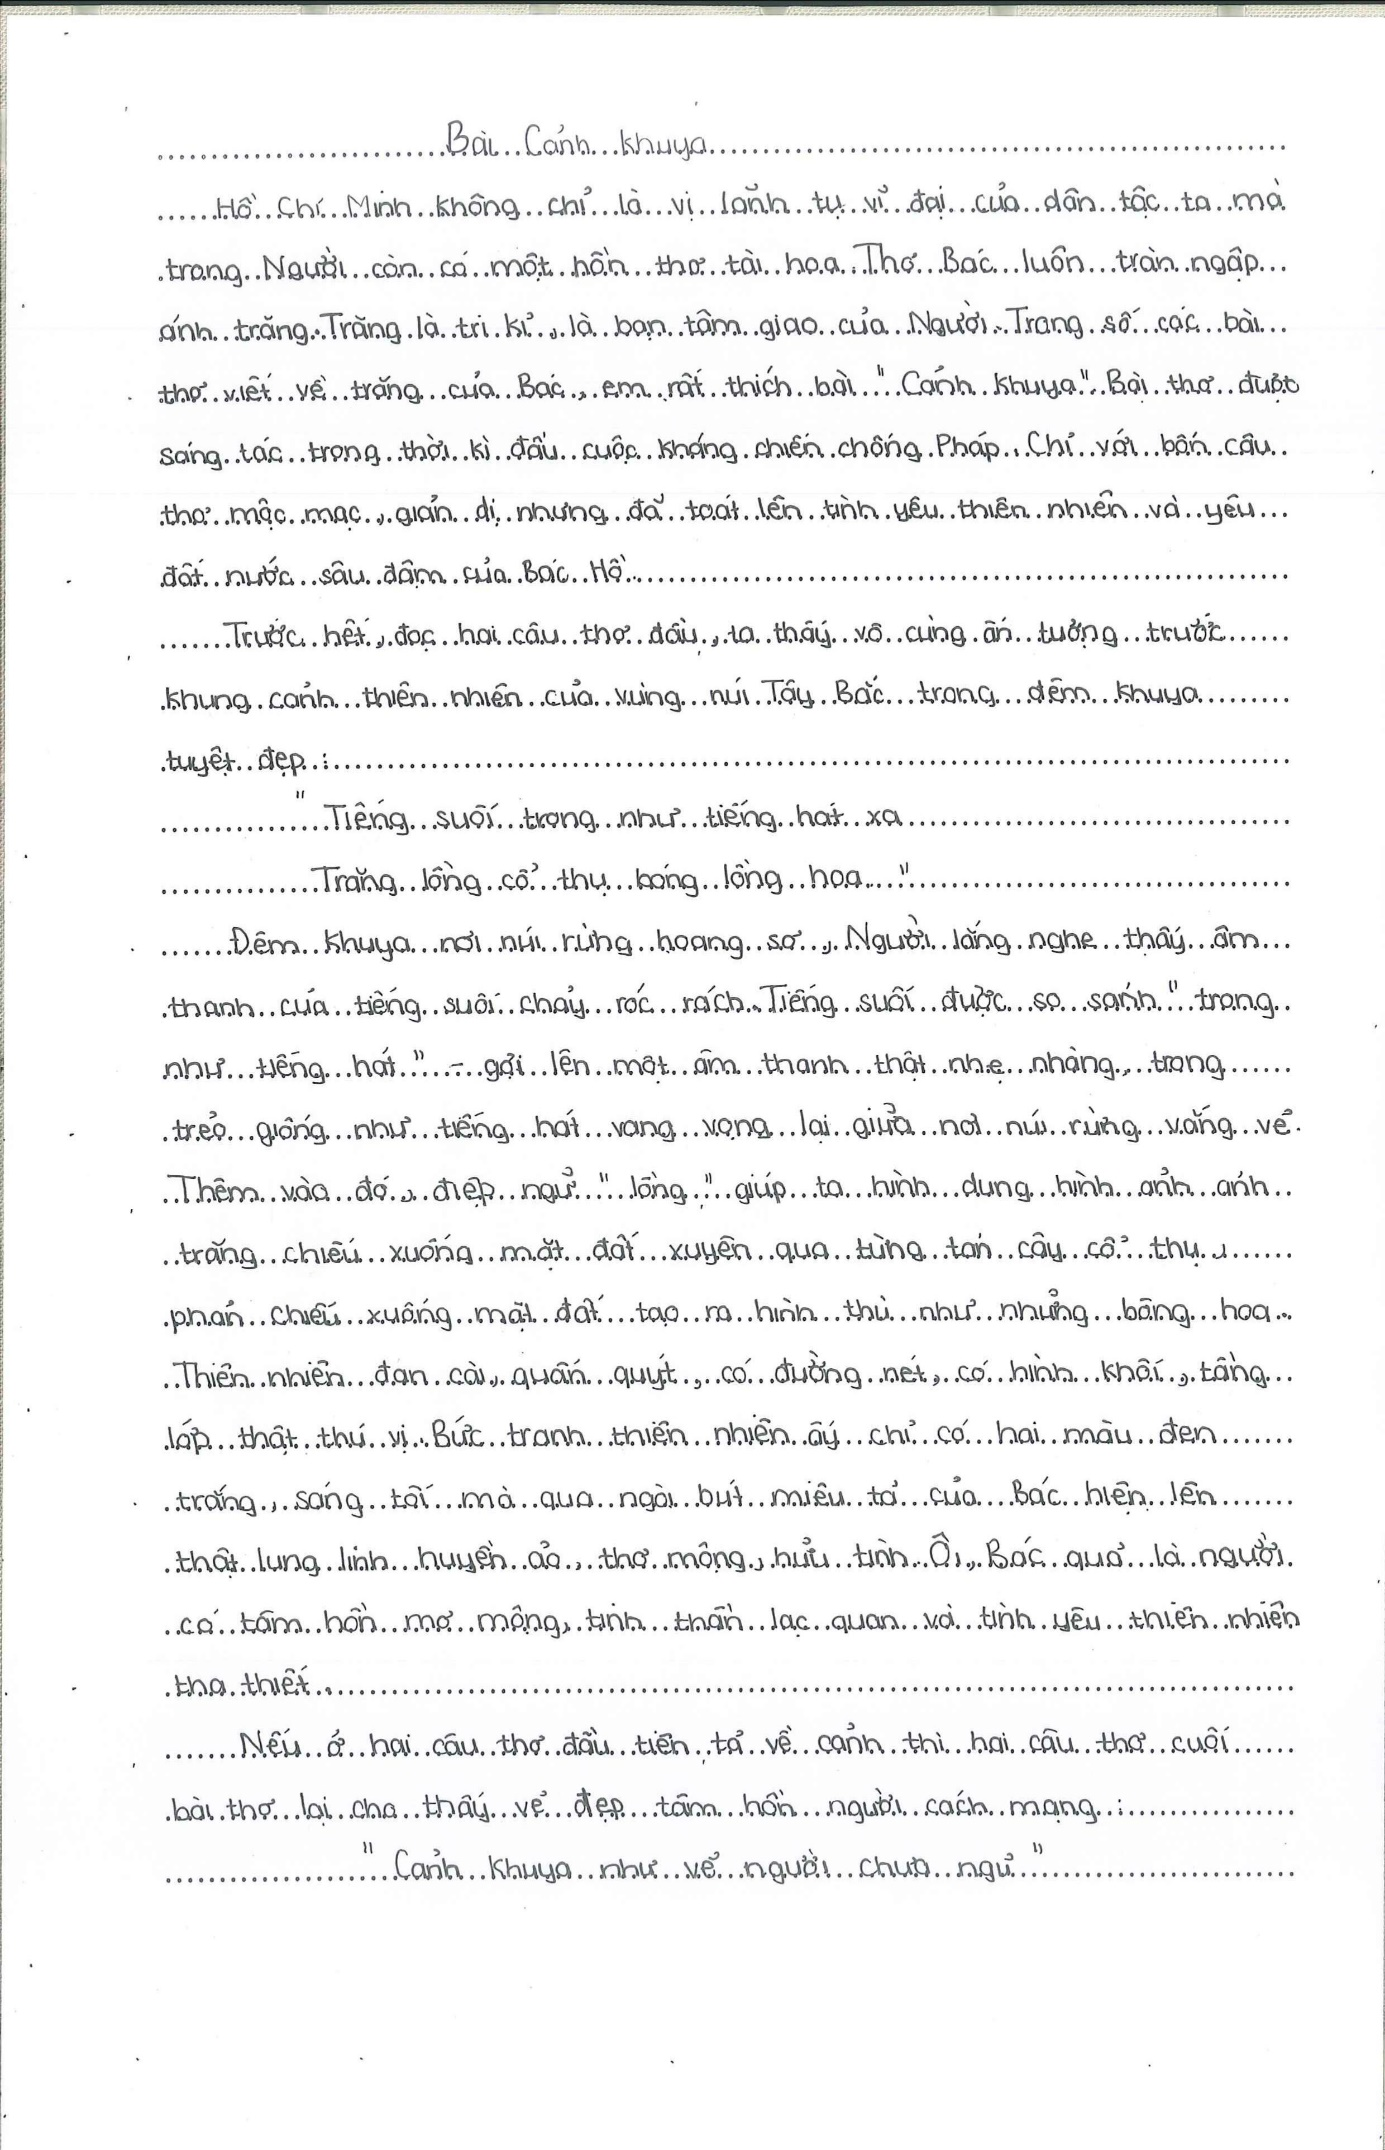 Bài Cảnh khuya
Hồ Chí Minh không chỉ là vị lãnh tụ vĩ đại của dân tộc ta mà
trong Người còn có một hồn thơ tài hoa. Thơ Bác luôn tràn ngập
ánh trăng. Trăng là tri kỉ, là bạn tâm giao của Người. Trong số các bài
thơ viết về trăng của Bác, em rất thích bài "Cảnh khuya". Bài thơ được
sáng tác trong thời kì đầu cuộc kháng chiến chống Pháp. Chỉ với bốn câu
thơ mộc mạc, giản dị nhưng đã toát lên tình yêu thiên nhiên và yêu
đất nước sâu đậm của Bác Hồ.
Trước hết, đọc hai câu thơ đầu, ta thấy vô cùng ấn tượng trước
khung cảnh thiên nhiên của vùng núi Tây Bắc trong đêm khuya
tuyệt đẹp:
"Tiếng suối trong như tiếng hát xa
Trăng lồng cổ thụ bóng lồng hoa"
Đêm khuya nơi núi rừng hoang sơ, Người lắng nghe thấy âm
thanh của tiếng suối chảy róc rách. Tiếng suối được so sánh "trong
như tiếng hát" - gợi lên một âm thanh thật nhẹ nhàng, trong
trẻo giống như tiếng hát vang vọng lại giữa nơi núi rừng vắng vẻ.
Thêm vào đó, điệp ngữ "lồng" giúp ta hình dung hình ảnh ánh
trăng chiếu xuống mặt đất xuyên qua từng tán cây cổ thụ,
phản chiếu xuống mặt đất tạo ra hình thù như những bông hoa.
Thiên nhiên đan cài, quấn quýt, có đường nét, có hình khối, tầng
lớp thật thú vị. Bức tranh thiên nhiên ấy chỉ có hai màu đen
trắng, sáng tối mà qua ngòi bút miêu tả của Bác hiện lên
thật lung linh huyền ảo, thơ mộng, hữu tình. Ôi, Bác quả là người
có tâm hồn mơ mộng, tinh thần lạc quan và tình yêu thiên nhiên
tha thiết.
Nếu ở hai câu thơ đầu tiên tả về cảnh thì hai câu thơ cuối
bài thơ lại cho thấy vẻ đẹp tâm hồn người cách mạng:
"Cảnh khuya như vẽ người chưa ngủ"